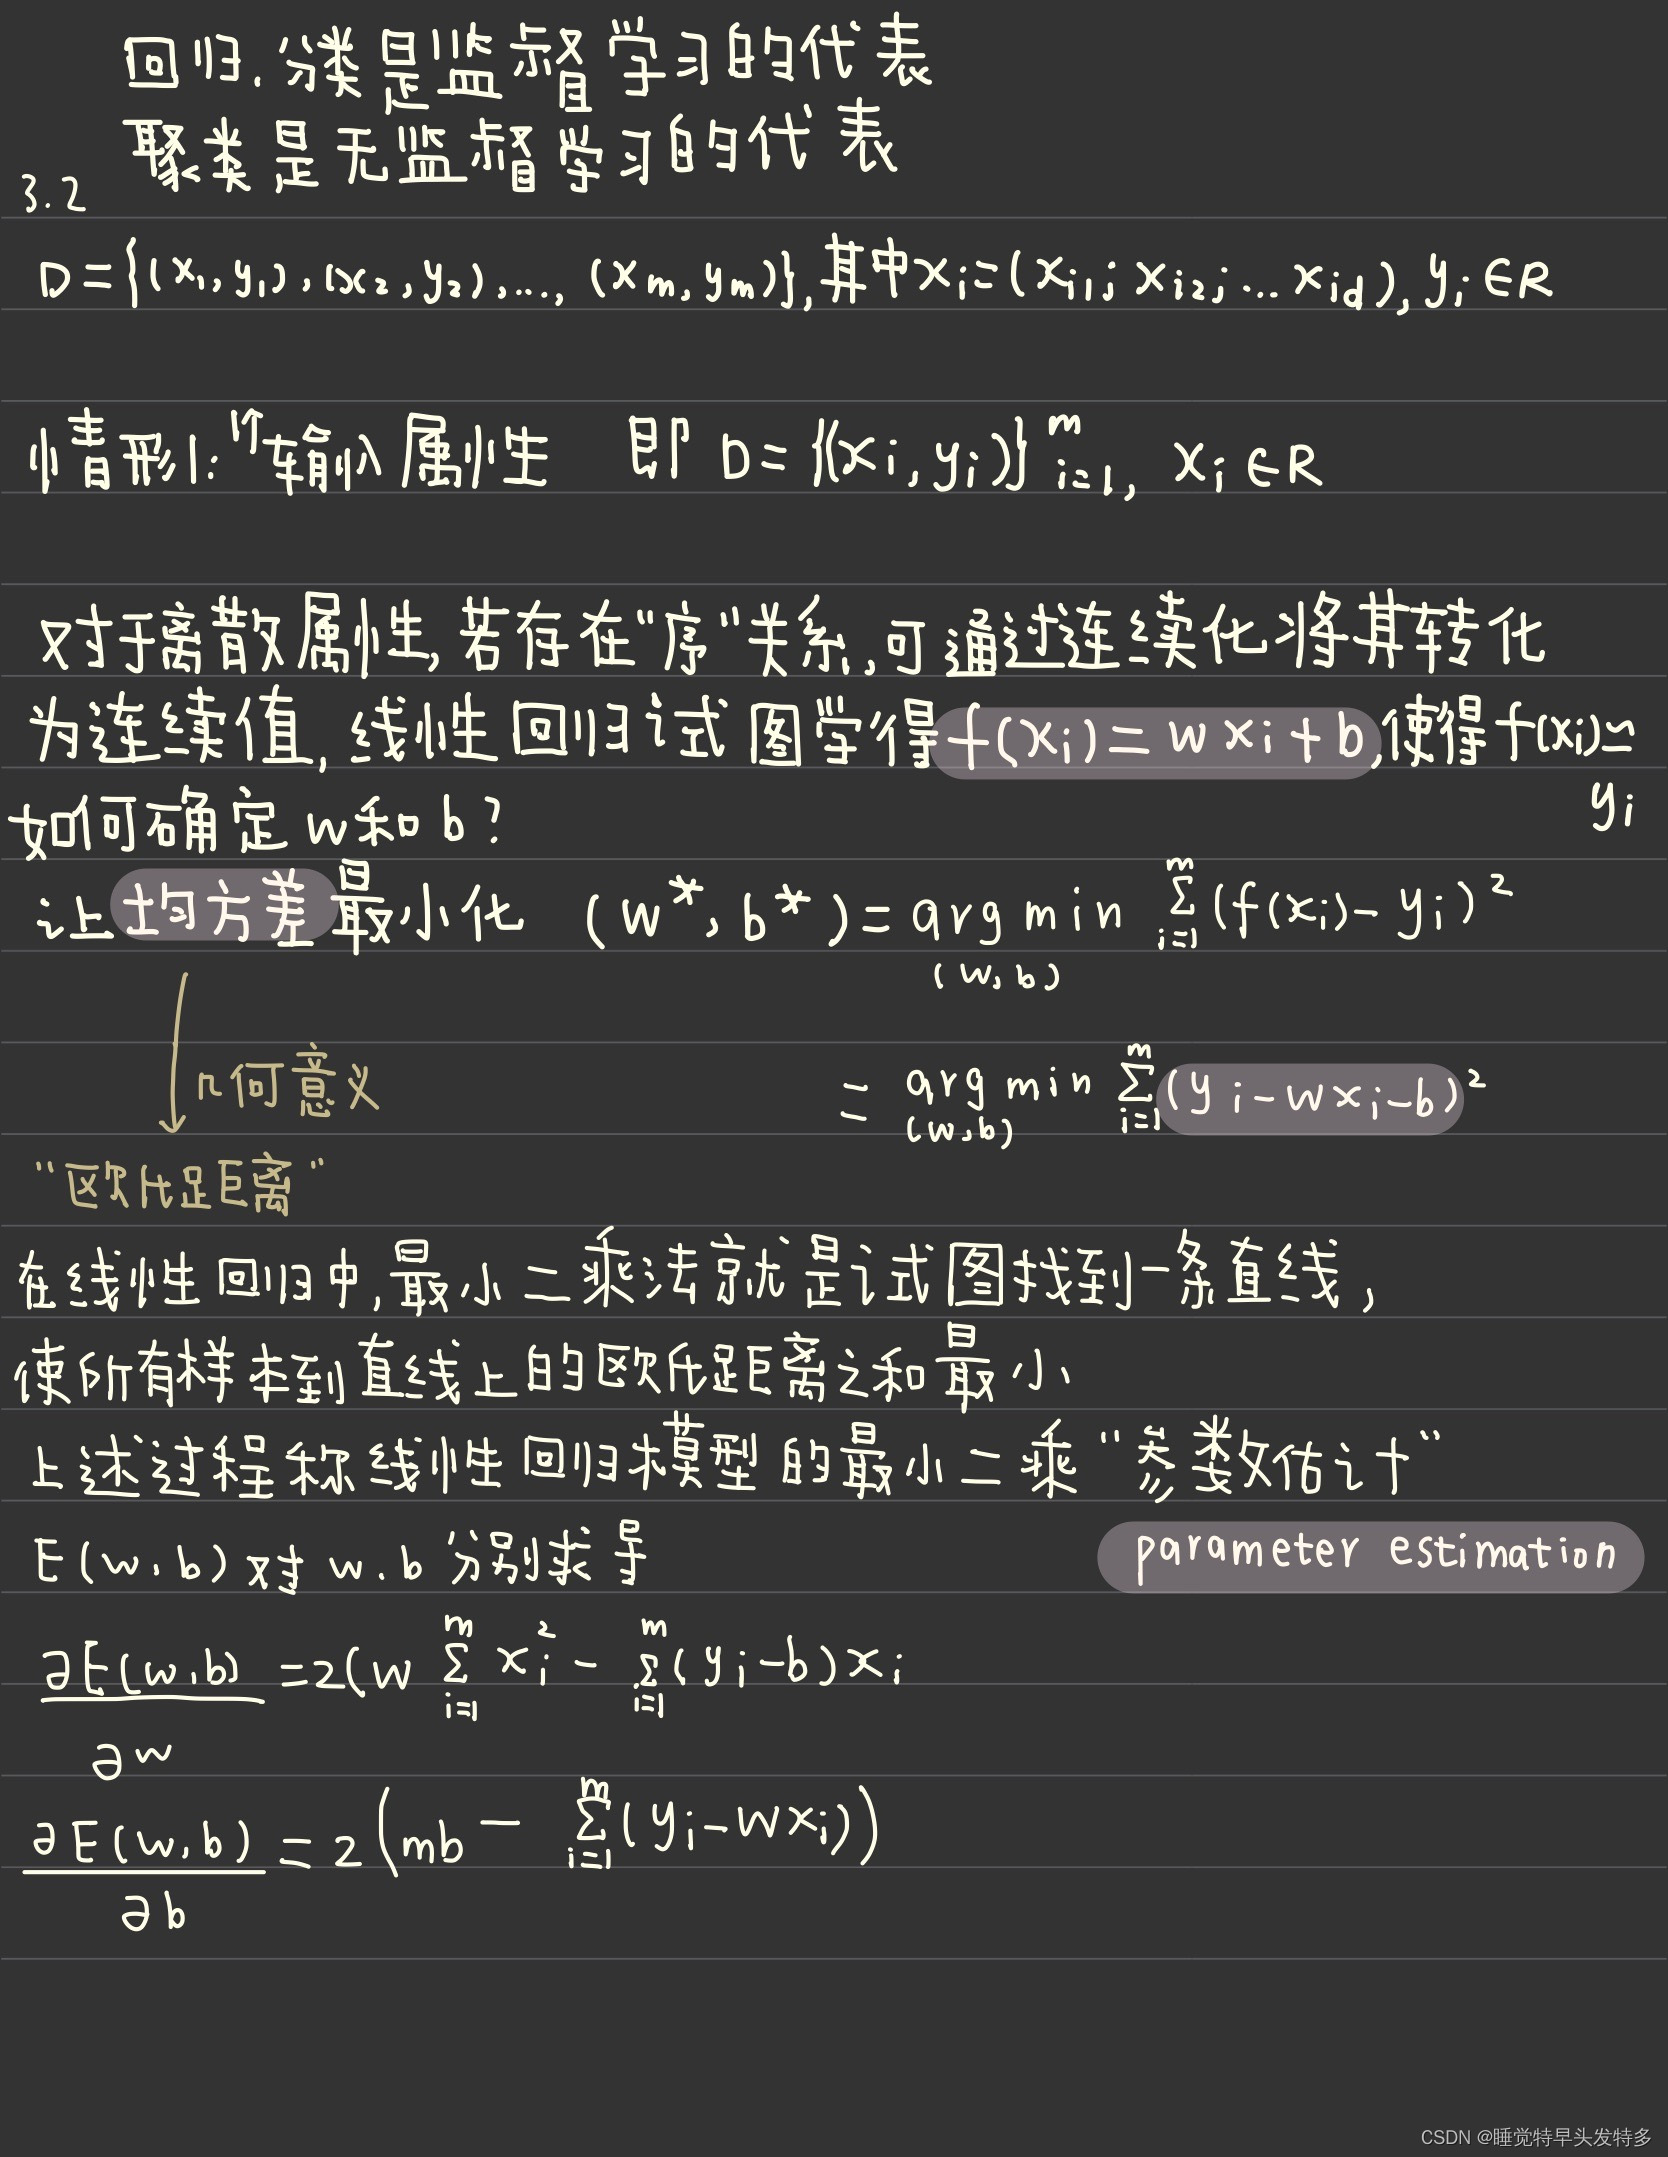 回归.分类是监督学习的代表
聚类是无监督学习的代表
3.2
D={(x₁,y₁),(x₂,y₂),...,(xm,ym)},其中xi=(xi1;xi2;...xid),yi∈R
情形1:1个输入属性 即 D={(xi,yi)}ᵐi=1, xi∈R
对于离散属性,若存在"序"关系,可通过连续化将其转化
为连续值,线性回归试图学得f(xi)=wxi+b,使得f(xi)≃
yi
如何确定w和b?
让均方差最小化 (w*,b*)=arg min Σ(f(xi)-yi)²
(w,b) i=1 m
几何意义 = arg min Σ(yi-wxi-b)²
(w,b) i=1 m
"欧氏距离"
在线性回归中,最小二乘法就是试图找到一条直线,
使所有样本到直线上的欧氏距离之和最小
上述过程称线性回归模型的最小二乘"参数估计"
E(w,b)对w.b分别求导 parameter estimation
∂E(w,b)/∂w =2(w Σᵐi=1 xi² - Σᵐi=1(yi-b)xi
∂E(w,b)/∂b = 2(mb - Σᵐi=1(yi-wxi))
CSDN @睡觉特早头发特多